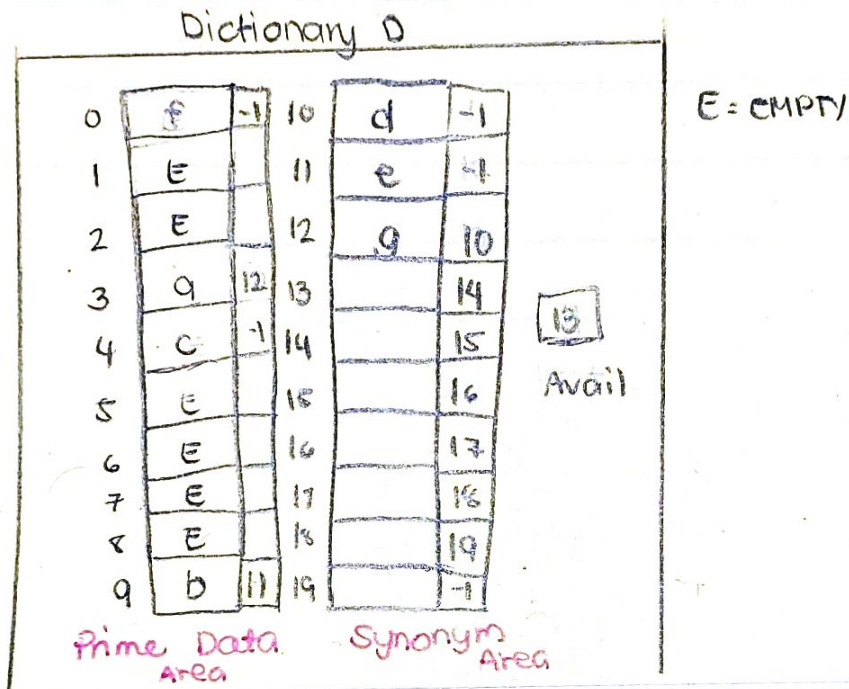 Dictionary D
E = EMPTY
0 f -1 10 d -1
1 E 11 e -1
2 E 12 g 10
3 a 12 13 14
4 C -1 14 15
5 E 15 16
6 E 16 17
7 E 17 18
8 E 18 19
9 b 11 19 -1
13
Avail
Prime Data Area
Synonym Area